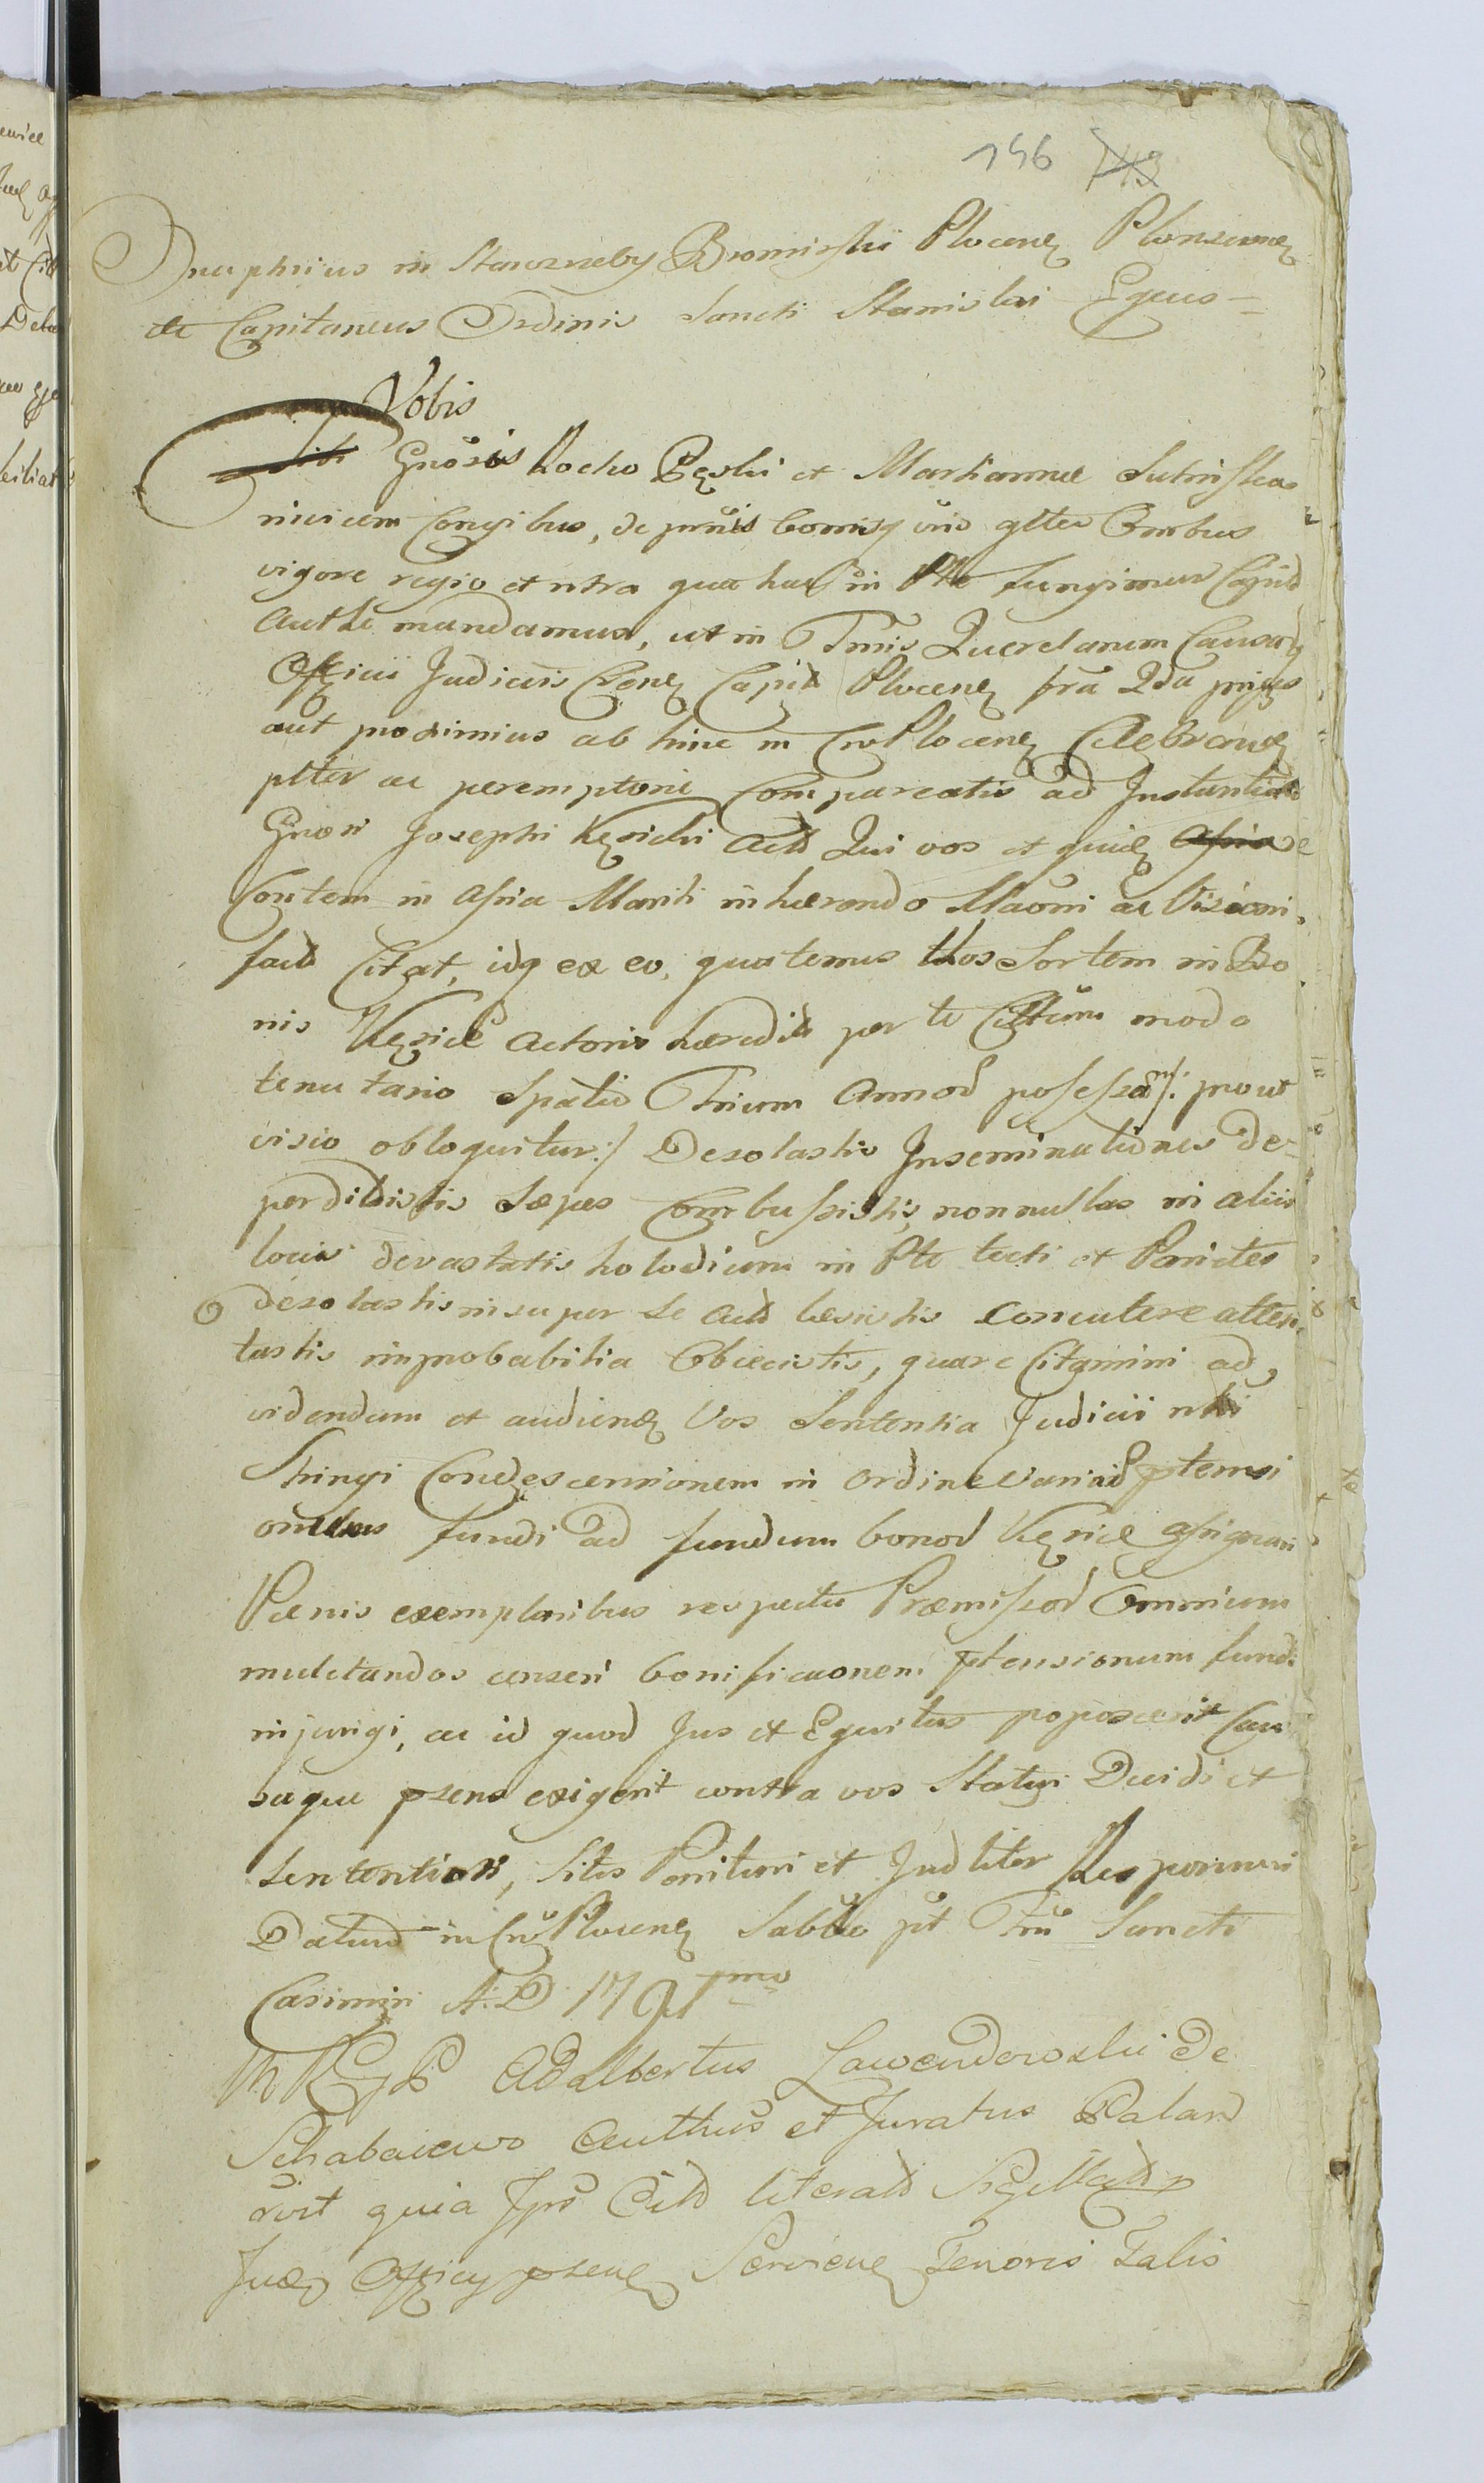 156 743
Onuphrius in Stawzneby Bromirski Plocenȩ Plonscenȩ
etc Capitaneus Ordinis Sancti Stanislai Eques
Vobis
Tibi Gnosis Rocho Pęski et Martiannæ Sutinska
invicem Congibus, de prmis bonisq vris glter Omibus
vigore regio et ntra qua hac in Pte fungimur Capnld
Autte mandamus, ut in Tmis Querelarum Causarȩ
Officii Judiciis Crenȩ Capit Plocenȩ fra Qda prijus
aut proximius ab hinc in Cro Plocenȩ Celebrandȩ
plter ac peremptorie Compareatis ad Instantiam
Gnosi Josephi Kęsicki Acto Qui vos et quidȩ
Contem in Assia Mariti inhærendo Maoni ac Visioni
fact Citat, idq ex eo, quatenus Vos Sortem in Bo
nis Kęsice actoris hæredit per te Citatum modo
tenutario Spatio Trium Annod possessam /: prout
visio obloquitur :/ Desolastis Inseminationes de-
perdidistis Sæpes Combussistis, nonnullas in aliis
locis devastatis holodium in Pte tecti et Parietes
desolastis insuper Se Acto læsistis Concutere atten
tastis improbabilia Obiecistis, quare Citamini ad
videndum et audiendȩ Vos Sententia Judicii ntri
Stringi Condescensionem in ordine variad ptensi
onibus fundi ad fundum bonod Kęsice assignari
Pœnis exemplaribus respectu Præmissod Omnium
mulctandos censeri bonificaonem ptensionum fundi
injungi, ac id quod Jus et Equitas poposcerit Cau
saque psens exigerit contra vos Statui Decidi et
Sententiari, Sitis Parituri et Judliter Responsuri
Datum in Cro Plocenȩ Sabbo pt Tm Sancti
Casimiri A. D. 1791mo
M R G P Adalbertus Lawendowski de
Schabaiewo Authus et Juratus Palam
rvit quia Ipse Citt literatt Sigillatt p
Judȩ Officy psenȩ Servienȩ Tenoris Talis